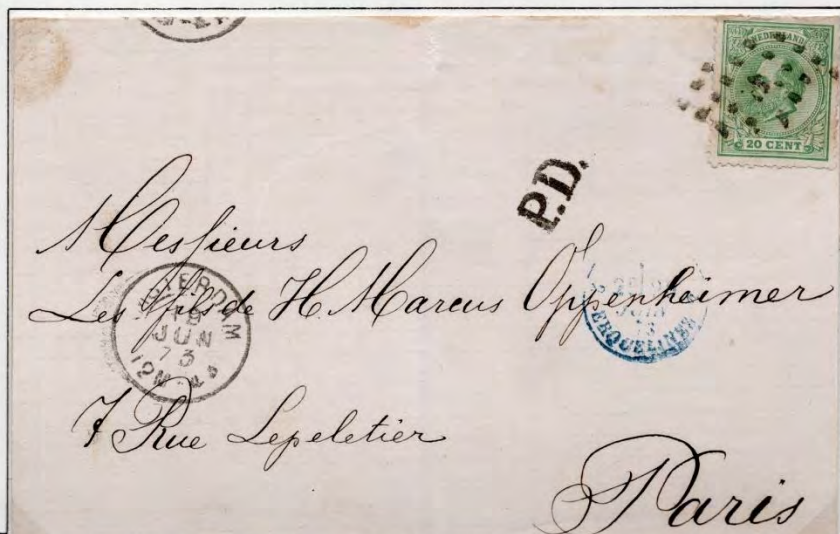 NEDERLAND
20 CENT
P.D.
Messieurs
Les fils de H Marcus Oppenheimer
JUN
73
12M-
JUIN
73
ERQUELINES
7 Rue Lepeletier
Paris